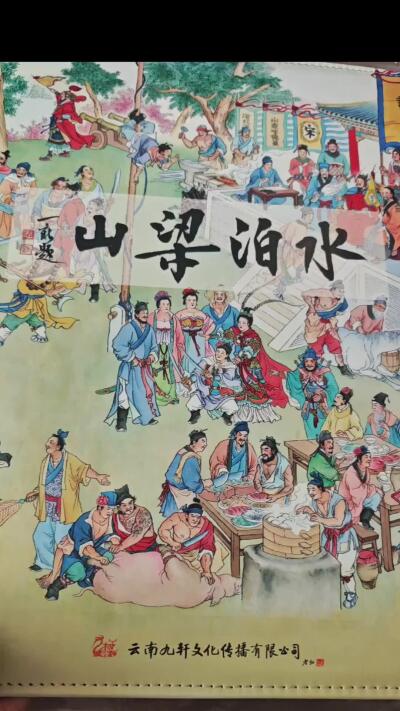 宋
水泊梁山
云南九轩文化传播有限公司